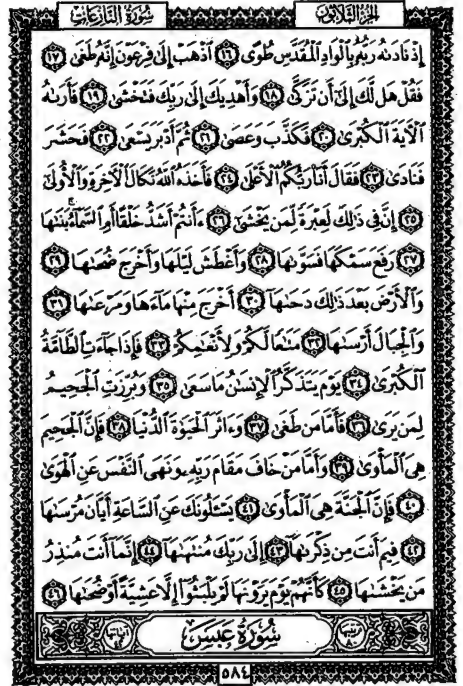 سُورَةُ النَّازِعَاتِ
الجُزءُ الثَّلَاثُونَ
إِذْ نَادَىٰهُ رَبُّهُۥ بِٱلْوَادِ ٱلْمُقَدَّسِ طُوًى ١٦ ٱذْهَبْ إِلَىٰ فِرْعَوْنَ إِنَّهُۥ طَغَىٰ ١٧
فَقُلْ هَل لَّكَ إِلَىٰٓ أَن تَزَكَّىٰ ١٨ وَأَهْدِيَكَ إِلَىٰ رَبِّكَ فَتَخْشَىٰ ١٩ فَأَرَىٰهُ
ٱلْءَايَةَ ٱلْكُبْرَىٰ ٢٠ فَكَذَّبَ وَعَصَىٰ ٢١ ثُمَّ أَدْبَرَ يَسْعَىٰ ٢٢ فَحَشَرَ
فَنَادَىٰ ٢٣ فَقَالَ أَنَا۠ رَبُّكُمُ ٱلْأَعْلَىٰ ٢٤ فَأَخَذَهُ ٱللَّهُ نَكَالَ ٱلْءَاخِرَةِ وَٱلْأُولَىٰٓ
٢٥ إِنَّ فِى ذَٰلِكَ لَعِبْرَةً لِّمَن يَخْشَىٰٓ ٢٦ ءَأَنتُمْ أَشَدُّ خَلْقًا أَمِ ٱلسَّمَآءُ ۚ بَنَىٰهَا
٢٧ رَفَعَ سَمْكَهَا فَسَوَّىٰهَا ٢٨ وَأَغْطَشَ لَيْلَهَا وَأَخْرَجَ ضُحَىٰهَا ٢٩
وَٱلْأَرْضَ بَعْدَ ذَٰلِكَ دَحَىٰهَآ ٣٠ أَخْرَجَ مِنْهَا مَآءَهَا وَمَرْعَىٰهَا ٣١
وَٱلْجِبَالَ أَرْسَىٰهَا ٣٢ مَتَٰعًا لَّكُمْ وَلِأَنْعَٰمِكُمْ ٣٣ فَإِذَا جَآءَتِ ٱلطَّآمَّةُ
ٱلْكُبْرَىٰ ٣٤ يَوْمَ يَتَذَكَّرُ ٱلْإِنسَٰنُ مَا سَعَىٰ ٣٥ وَبُرِّزَتِ ٱلْجَحِيمُ
لِمَن يَرَىٰ ٣٦ فَأَمَّا مَن طَغَىٰ ٣٧ وَءَاثَرَ ٱلْحَيَوٰةَ ٱلدُّنْيَا ٣٨ فَإِنَّ ٱلْجَحِيمَ
هِىَ ٱلْمَأْوَىٰ ٣٩ وَأَمَّا مَنْ خَافَ مَقَامَ رَبِّهِۦ وَنَهَى ٱلنَّفْسَ عَنِ ٱلْهَوَىٰ
٤٠ فَإِنَّ ٱلْجَنَّةَ هِىَ ٱلْمَأْوَىٰ ٤١ يَسْـَٔلُونَكَ عَنِ ٱلسَّاعَةِ أَيَّانَ مُرْسَىٰهَا
٤٢ فِيمَ أَنتَ مِن ذِكْرَىٰهَآ ٤٣ إِلَىٰ رَبِّكَ مُنتَهَىٰهَآ ٤٤ إِنَّمَآ أَنتَ مُنذِرُ
مَن يَخْشَىٰهَا ٤٥ كَأَنَّهُمْ يَوْمَ يَرَوْنَهَا لَمْ يَلْبَثُوٓا۟ إِلَّا عَشِيَّةً أَوْ ضُحَىٰهَا ٤٦
سُورَةُ عَبَسَ
٥٨٤